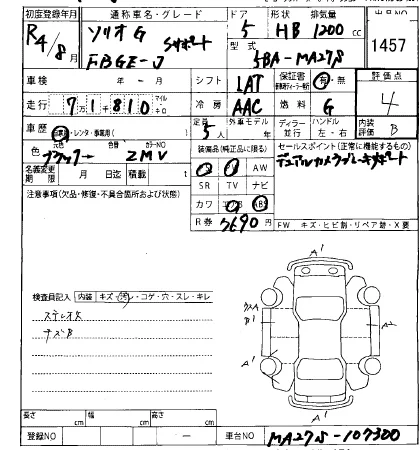 初度登録年月 通称車名・グレード ドア 形状 排気量 出品NO
R4/8月 ソリオG Sサポート 5 HB 1200cc 1457
FBGE-J 型式 5BA-MA27S
車検 年 - 月 シフト IAT 保証書 有・無 評価点
走行 71,810 マイル 冷房 AAC 燃料 G 4
車歴 自家用・レンタ・事業用( ) 定員 5人 外車モデル 年 ディーラー 並行 ハンドル 左・右 内装評価 B
元色 色替 カラーNO 装備品(純正品に限る) セールスポイント(正常に機能するもの)
色 ブラック→ ZMV AW デュアルカメラブレーキサポート
名義変更期限 月 日迄 積載 t SR TV ナビ
注意事項(欠品・修復・不具合箇所および状態) カワ エアB ABS
R券 7690円 FW キズ・ヒビ割・リペア跡・X要
A1
検査員記入 内装 キズ・汚レ・コゲ・穴・スレ・キレ
ステレオ欠
キズB
A1
A2
A1
A1
長さ cm 幅 cm 高さ cm
登録NO - 車台NO MA27S-107300